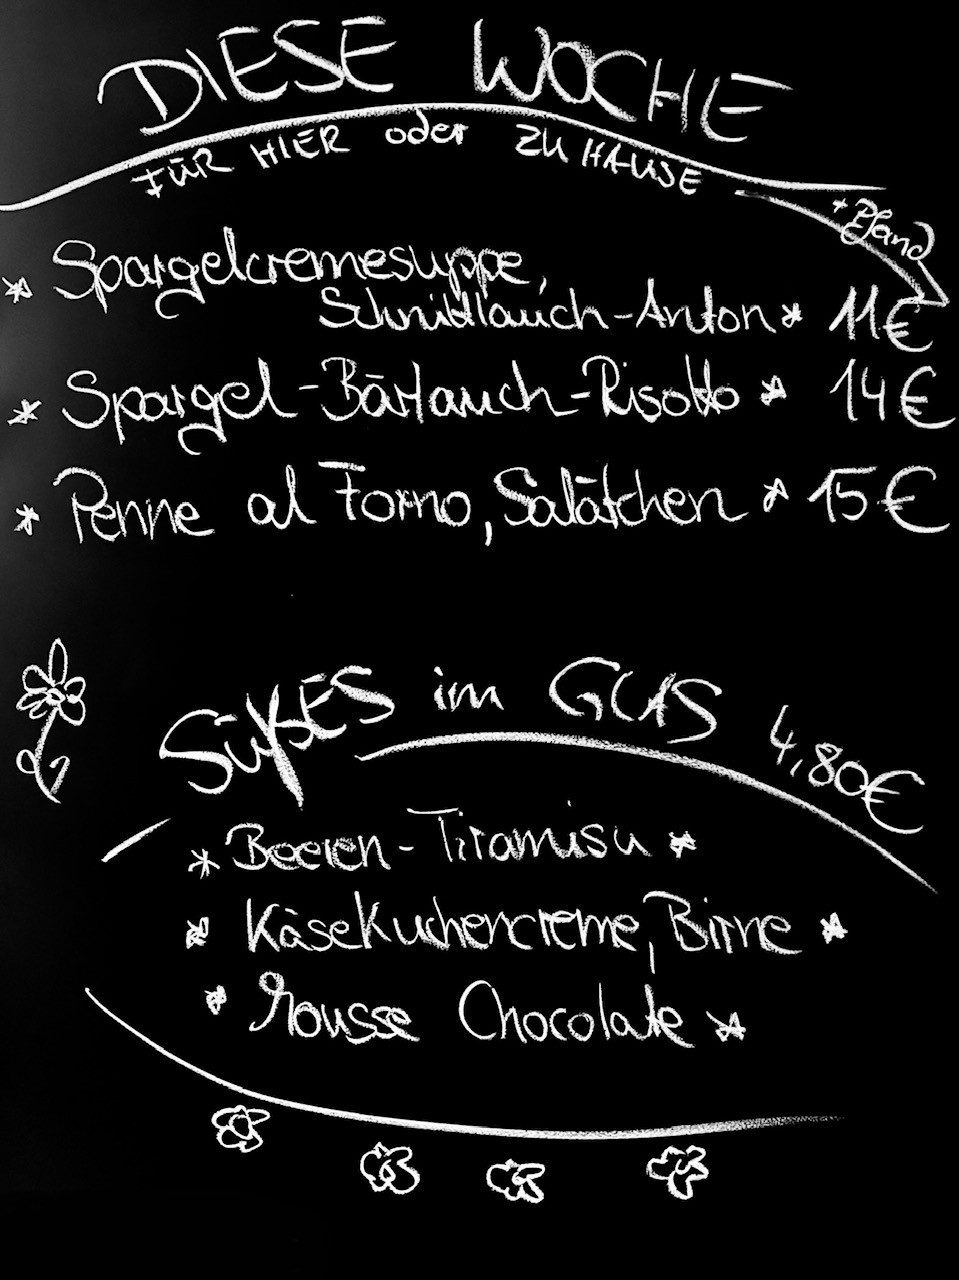 DIESE WOCHE
FÜR HIER oder ZUHAUSE
+ Pfand
* Spargelcremesuppe,
Schnittlauch-Anton * 11€
* Spargel-Bärlauch-Risotto * 14€
* Penne al Forno, Salätchen * 15€
SÜßES im GLAS 4,80€
* Beeren-Tiramisu *
* Käsekuchencreme, Birne *
* Mousse Chocolate *